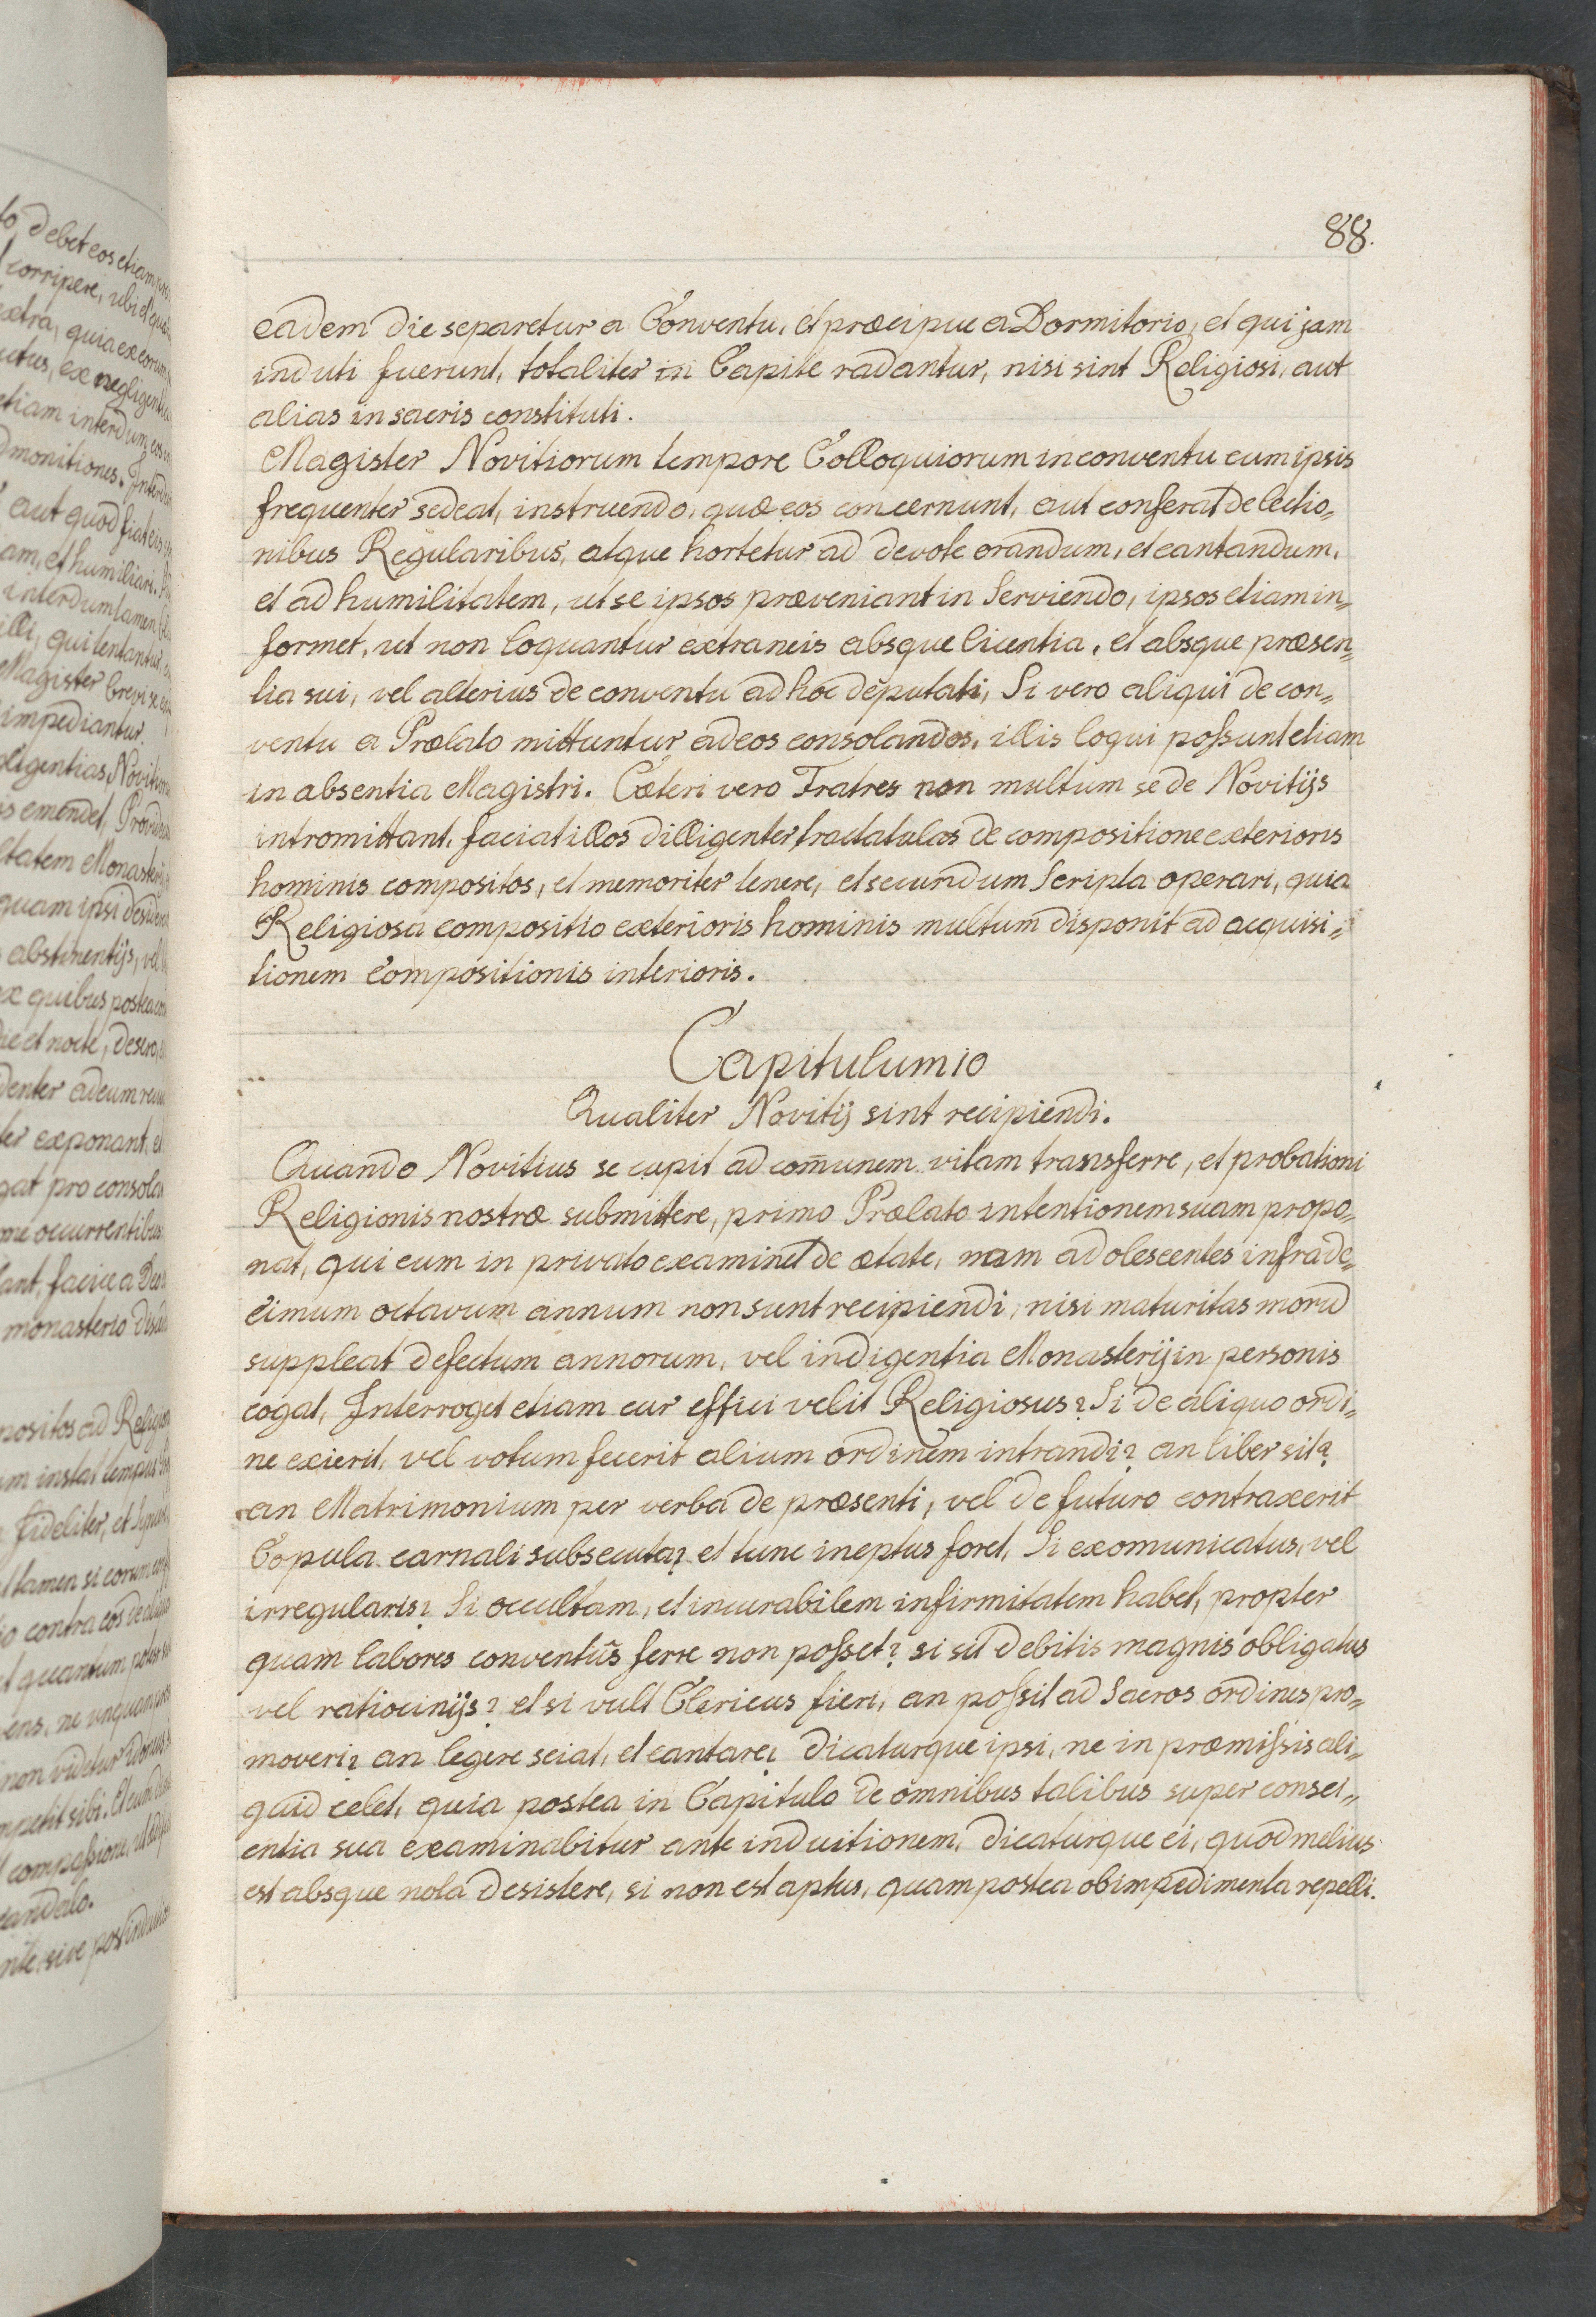 88.
eadem die separetur a Conventu, et præcipue a Dormitorio, et qui jam
induti fuerunt, totaliter in Capite radantur, nisi sint Religiosi, aut
alias in sacris constituti.
Magister Novitiorum tempore Colloquiorum in conventu cum ipsis
frequenter sedeat, instruendo, quæ eos concernunt, aut conferat de lectio„
nibus Regularibus, atque hortetur ad devote orandum, et cantandum,
et ad humilitatem, ut se ipsos præveniant in Serviendo, ipsos etiam in„
formet, ut non loquantur extraneis absque licentia, et absque præsen„
tia sui, vel alterius de conventu ad hoc deputati, Si vero aliqui de con„
ventu a Prælato mittuntur ad eos consolandos, illis loqui possunt etiam
in absentia Magistri. Cæteri vero Fratres non multum se de Novitijs
intromittant. faciat illos dilligenter tractatulos de compositione exterioris
hominis compositos, et memoriter tenere, et secundum Scripta operari, quia
Religiosa compositio exterioris hominis multum disponit ad acquisi„
tionem Compositionis interioris.
Capitulum 10
Qualiter Novitij sint recipiendi.
Quando Novitius se cupit ad com̃unem vitam transferre, et probationi
Religionis nostræ submittere, primo Prælato intentionem suam propo„
nat, qui eum in privato examinet de ætate, nam adolescentes infra de„
cimum octavum annum non sunt recipiendi, nisi maturitas morū
suppleat defectum annorum, vel indigentia Monasterij in personis
cogat, Interroget etiam cur effici velit Religiosus? Si de aliquo ordi„
ne exierit, vel votum fecerit alium ordinem intrandi? an liber sit?
an Matrimonium per verba de præsenti, vel de futuro contraxerit
Copula carnali subsecuta? et tunc ineptus foret, Si exomunicatus, vel
irregularis? Si occultam, et incurabilem infirmitatem habet, propter
quam labores conventûs ferre non posset? si sit debitis magnis obligatus
vel ratiocinijs? et si vult Clericus fieri, an possit ad Sacros ordines pro„
moveri? an legere sciat, et cantare? dicaturque ipsi, ne in præmissis ali„
quid celet, quia postea in Capitulo de omnibus talibus super consci„
entia sua examinabitur ante induitionem, dicaturque ei, quod melius
est absque nota desistere, si non est aptus, quam postea ob impedimenta repelli.